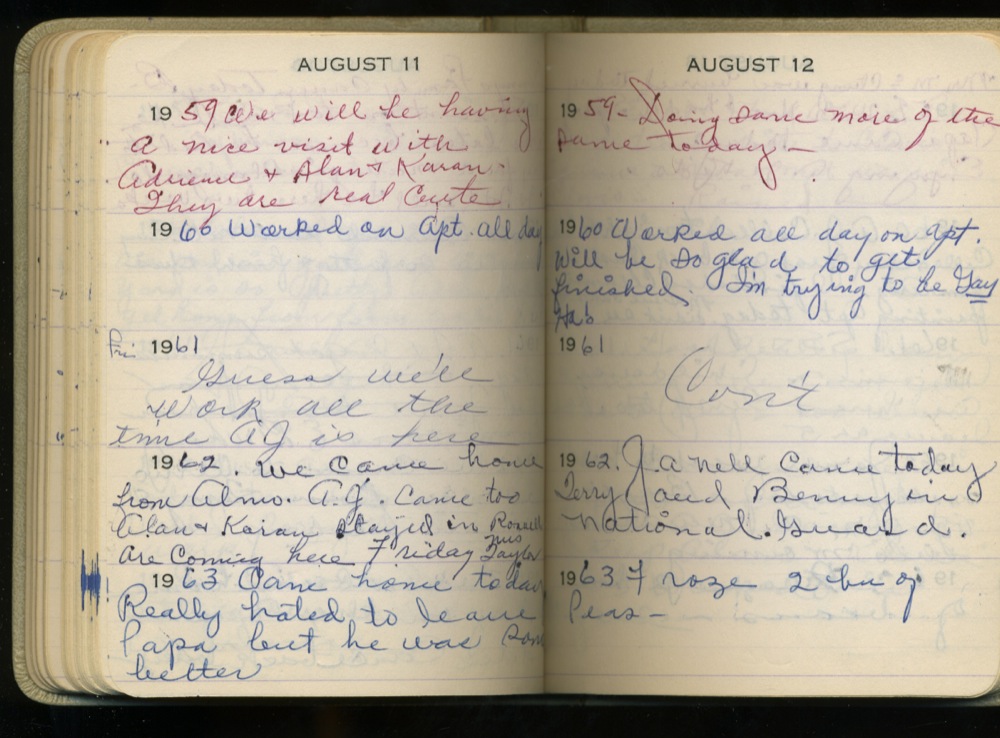 AUGUST 11
1959 We will be having
a nice visit with
Adriene + Alan + Karan.
They are real Cute.
1960 Worked on Apt. all day
Fri 1961
Guess we'll
work all the
time AJ is here
1962. We Came home
from Almo. A.J. Came too
Alan + Karan stayed in Roswell
Are Coming here Friday Taylor
1963 Came home today
Really hated to leave
Papa but he was som
better
AUGUST 12
1959 - Doing some more of the
same today -
1960 Worked all day on Apt.
Will be so glad to get
finished I'm trying to be Gay
Hab
1961
Con't
1962. Janell Came today
Terry and Benny in
National Guard.
1963. Froze 2 bu of
Peas -